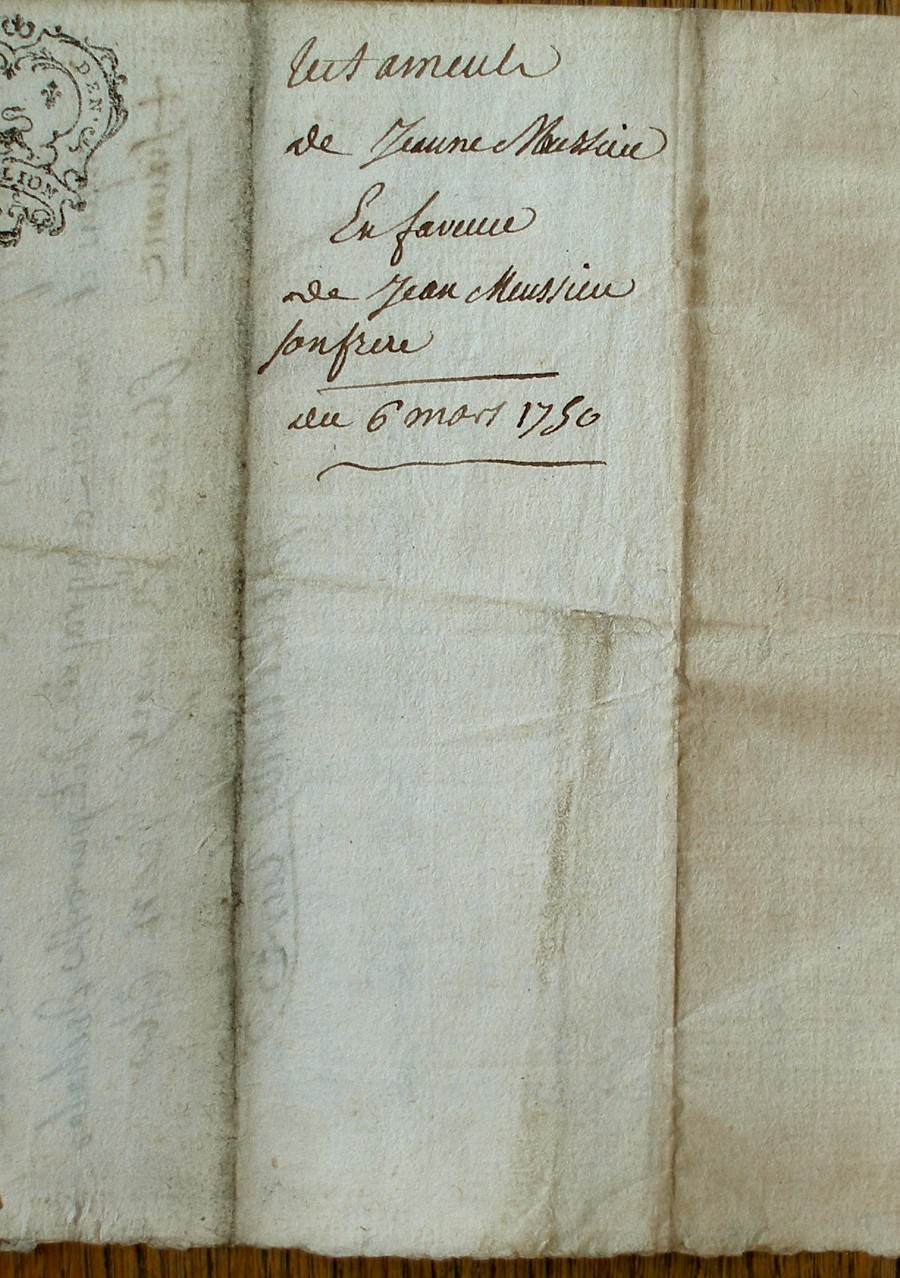 DEN · G
LION
testament
de Jeanne Meussieu
En faveur
de Jean Meussieu
son frere
du 6 mars 1750